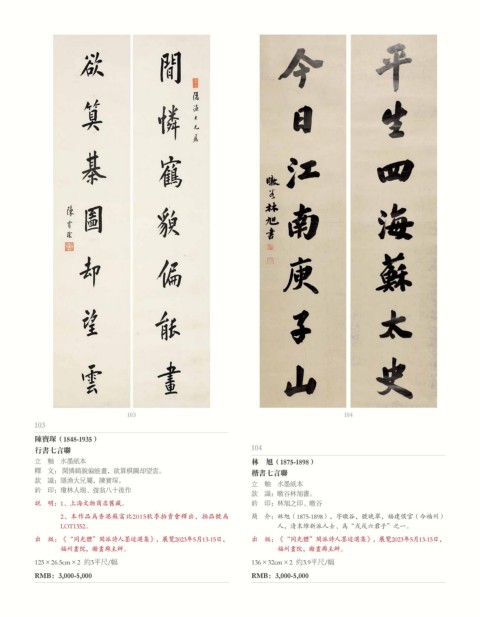 閒憐鶴貌偏能畫
隱漁大兄屬
欲算棊圖却望雲
陳寶琛
平生四海蘇太史
今日江南庾子山
暾谷林旭書
103
104
103
陳寶琛（1848-1935）
行書七言聯
立 軸 水墨紙本
釋 文：閒憐鶴貌偏能畫，欲算棋圖却望雲。
款 識：隱漁大兄屬，陳寶琛。
鈐 印：瓊林人瑞、弢翁八十後作
說 明：1、上海文物商店舊藏。
2、本作品爲香港蘇富比2015秋季拍賣會釋出，拍品號爲
LOT1352。
出 版：《“同光體”閩派詩人墨迹選集》，展覽2023年5月13-15日，
福州畫院，翰畫廊主辦。
125×26.5cm×2 約3平尺/幅
RMB：3,000-5,000
104
林 旭（1875-1898）
楷書七言聯
立 軸 水墨紙本
款 識：暾谷林旭書。
鈐 印：林旭之印、暾谷
簡 介：林旭（1875-1898），字暾谷，號晚翠，福建侯官（今福州）
人。清末維新派人士，爲“戊戌六君子”之一。
出 版：《“同光體”閩派詩人墨迹選集》，展覽2023年5月13-15日，
福州畫院，翰畫廊主辦。
136×32cm×2 約3.9平尺/幅
RMB：3,000-5,000